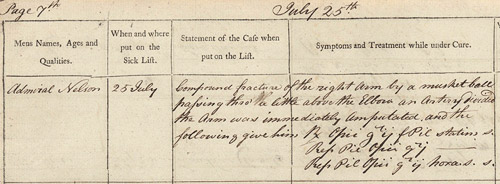 Page 7th July 25th
Mens Names, Ages and Qualities.
When and where put on the Sick List.
Statement of the Case when put on the List.
Symptoms and Treatment while under Cure.
Admiral Nelson 25 July Compound fracture of the right Arm by a musket ball
passing thro' a little above the Elbow an Artery divided
the Arm was immediately amputated, and the
following give him Rx Opii gr ij f Pil statim s.
Rep Pil Opii gr ij
Rep Pil Opii gr ij hora s. s.